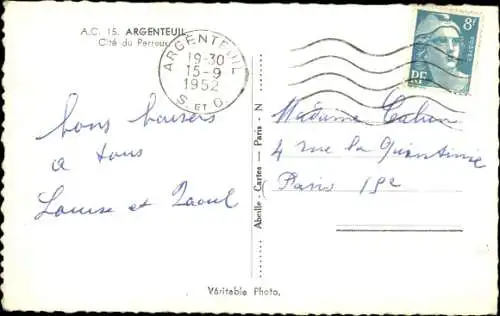 A.C. 15. ARGENTEUIL
Cité du Perroux
ARGENTEUIL
19-30
15-9
1952
S. ET O.
8F
POSTES
RF
bons baisers
a tous
Louise et Raoul
Abeille - Cartes - Paris - N
Madame Cahen
4 rue La Quintinie
Paris 15e
Véritable Photo.